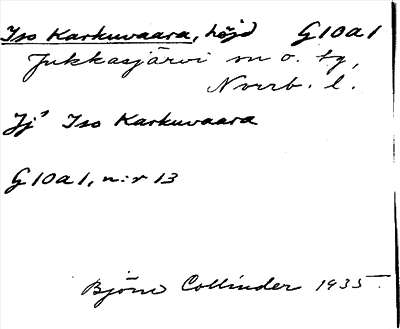 Iso Karkuvaara, höjd G10a1
Jukkasjärvi sn o. tg,
Nverb. l.
Jj⁸ Iso Karkuvaara
G10a1, n:r 13
Björn Collinder 1935.